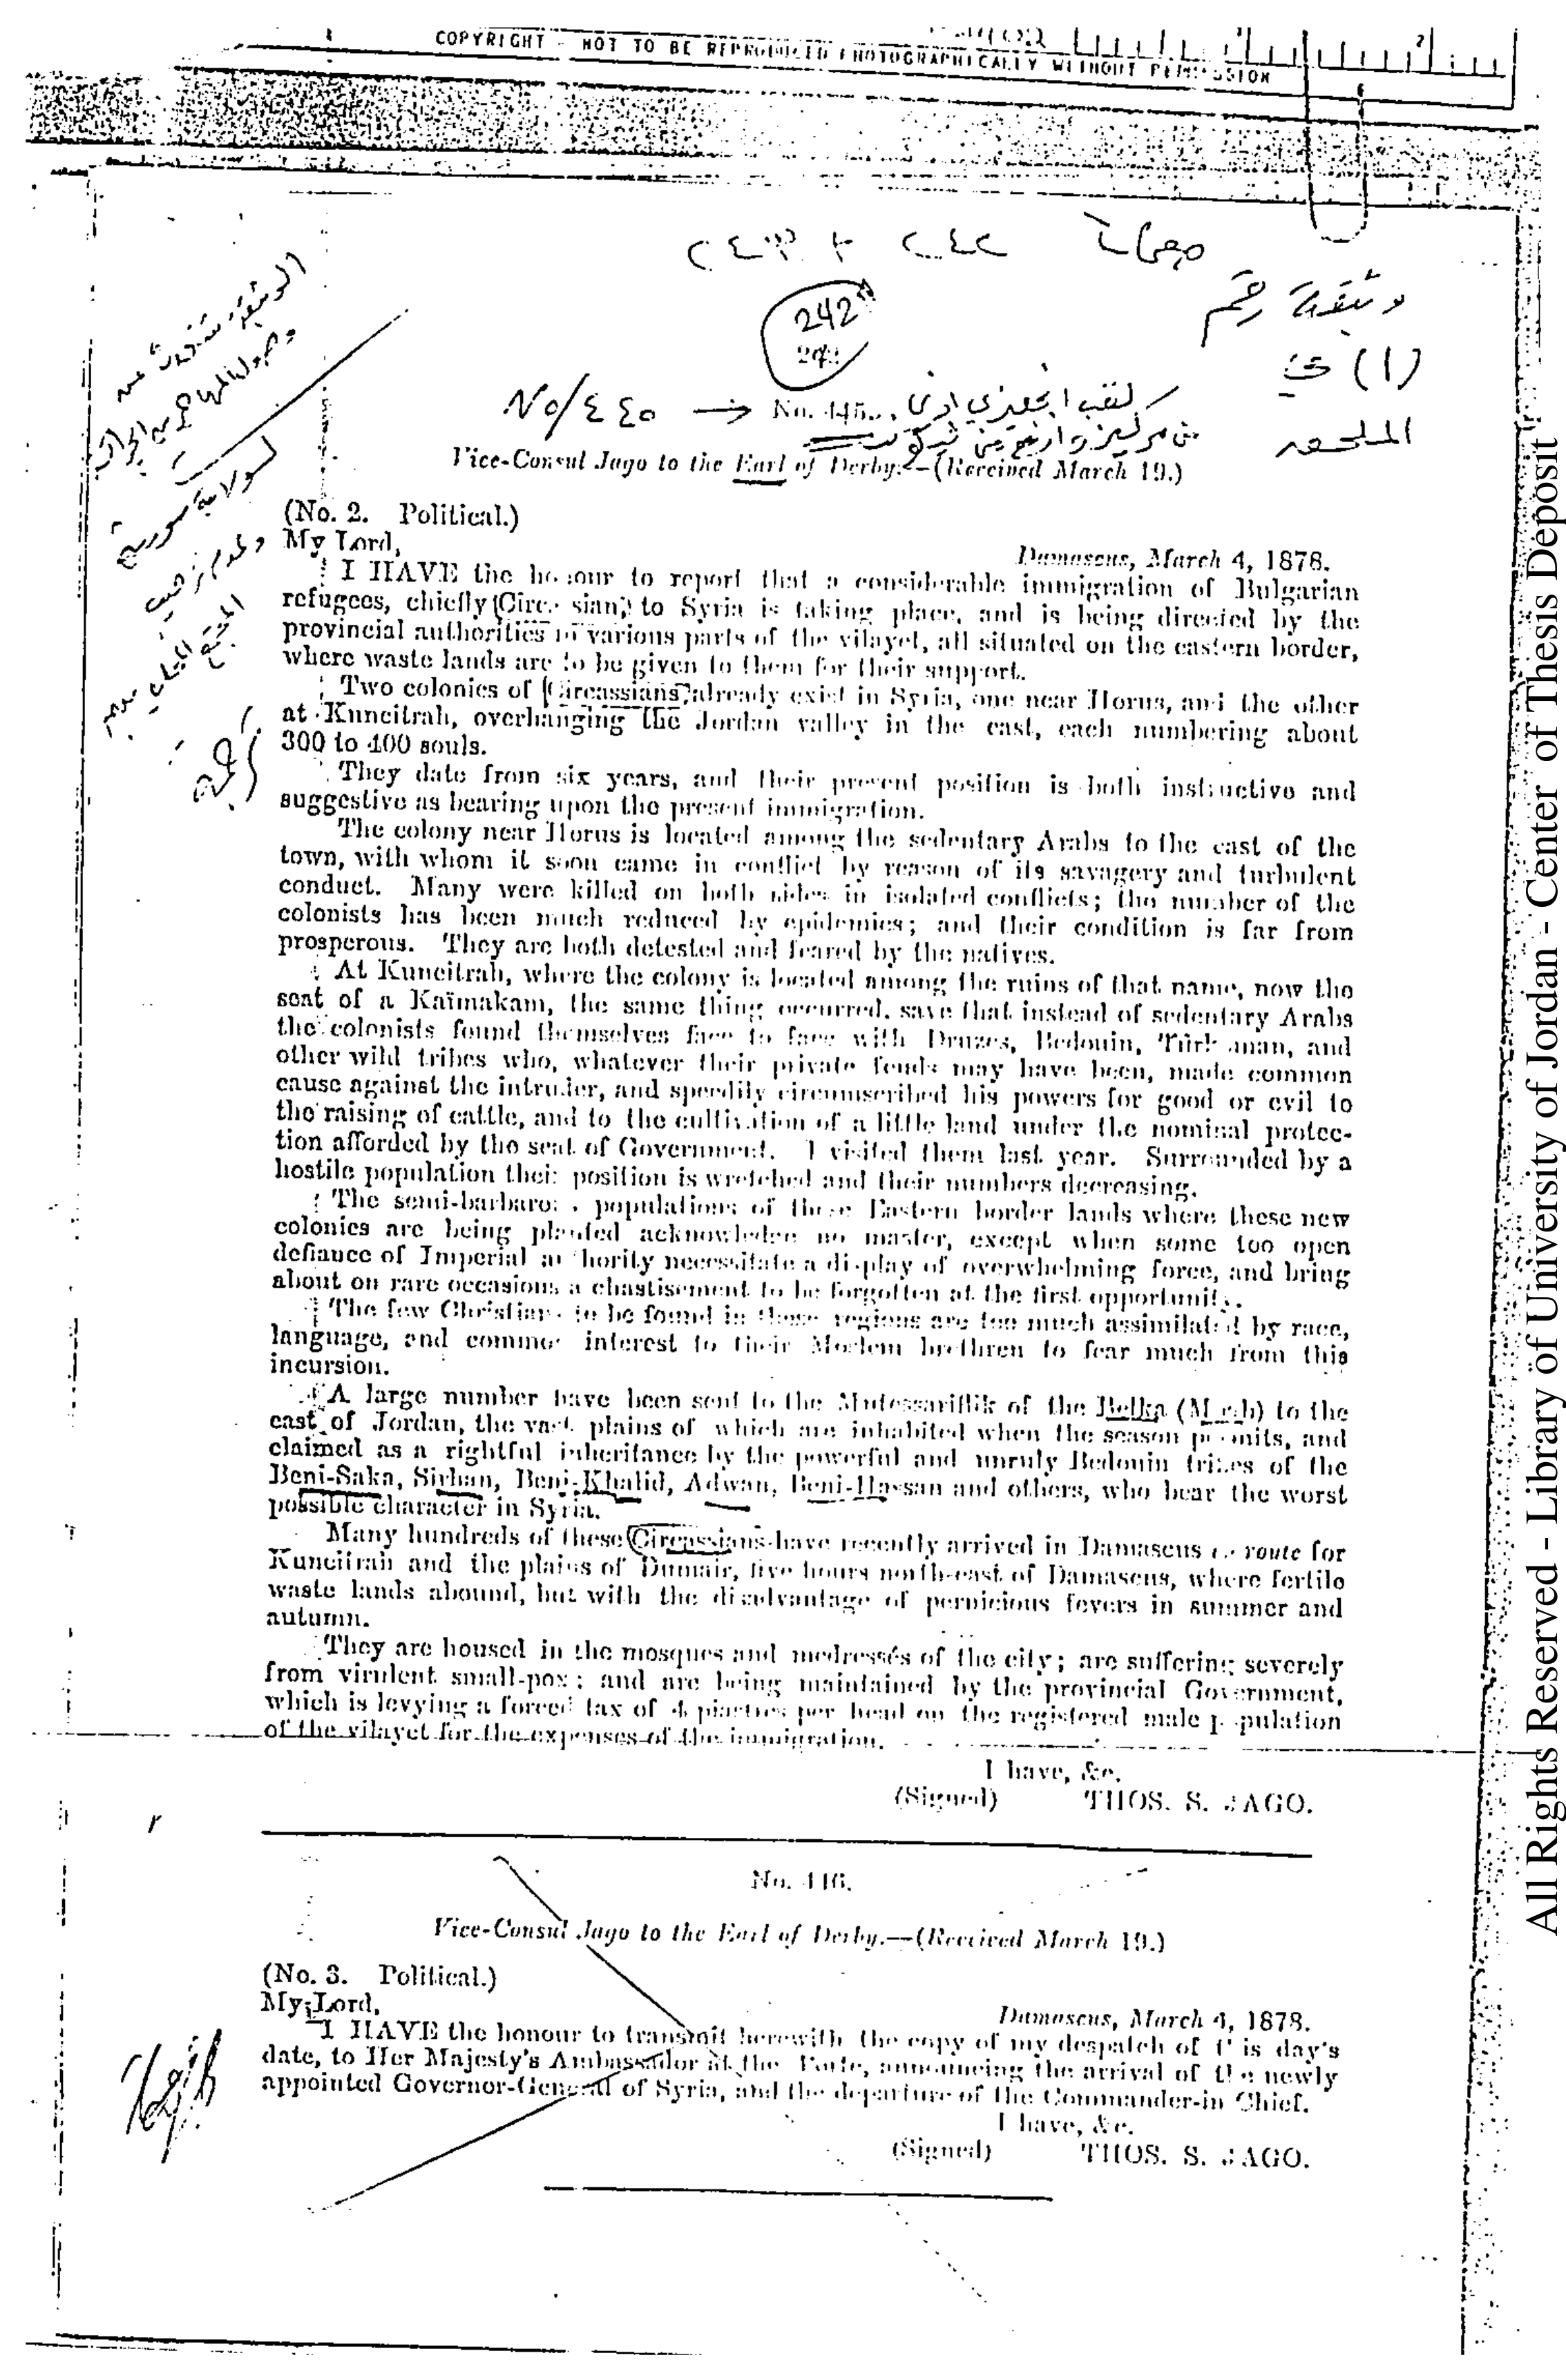 COPYRIGHT - NOT TO BE REPRODUCED PHOTOGRAPHICALLY WITHOUT PERMISSION
242
وثيقة رقم
(١) في
الملحق
No/٤٤٥ → No. 445.
Vice-Consul Jago to the Earl of Derby.—(Received March 19.)
(No. 2. Political.)
My Lord,
Damascus, March 4, 1878.
I HAVE the honour to report that a considerable immigration of Bulgarian
refugees, chiefly (Circassian) to Syria is taking place, and is being directed by the
provincial authorities to various parts of the vilayet, all situated on the eastern border,
where waste lands are to be given to them for their support.
Two colonies of (Circassians) already exist in Syria, one near Horus, and the other
at Kuneitrah, overhanging the Jordan valley in the east, each numbering about
300 to 400 souls.
They date from six years, and their present position is both instructive and
suggestive as bearing upon the present immigration.
The colony near Horus is located among the sedentary Arabs to the east of the
town, with whom it soon came in conflict by reason of its savagery and turbulent
conduct. Many were killed on both sides in isolated conflicts; the number of the
colonists has been much reduced by epidemics; and their condition is far from
prosperous. They are both detested and feared by the natives.
At Kuneitrah, where the colony is located among the ruins of that name, now the
seat of a Kaïmakam, the same thing occurred, save that instead of sedentary Arabs
the colonists found themselves face to face with Druzes, Bedouin, Turkoman, and
other wild tribes who, whatever their private feuds may have been, made common
cause against the intruder, and speedily circumscribed his powers for good or evil to
the raising of cattle, and to the cultivation of a little land under the nominal protec-
tion afforded by the seat of Government. I visited them last year. Surrounded by a
hostile population their position is wretched and their numbers decreasing.
The semi-barbarous populations of these Eastern border lands where these new
colonies are being planted acknowledge no master, except when some too open
defiance of Imperial authority necessitate a display of overwhelming force, and bring
about on rare occasions a chastisement to be forgotten at the first opportunity.
The few Christians to be found in these regions are too much assimilated by race,
language, and common interest to their Moslem brethren to fear much from this
incursion.
A large number have been sent to the Mutessariflik of the Belka (Moab) to the
east of Jordan, the vast plains of which are inhabited when the season permits, and
claimed as a rightful inheritance by the powerful and unruly Bedouin tribes of the
Beni-Saka, Sirhan, Beni-Khalid, Adwan, Beni-Hassan and others, who bear the worst
possible character in Syria.
Many hundreds of these Circassians have recently arrived in Damascus en route for
Kuneitrah and the plains of Dumair, five hours north-east of Damascus, where fertile
waste lands abound, but with the disadvantage of pernicious fevers in summer and
autumn.
They are housed in the mosques and medressés of the city; are suffering severely
from virulent small-pox; and are being maintained by the provincial Government,
which is levying a forced tax of 4 piastres per head on the registered male population
of the vilayet for the expenses of the immigration.
I have, &c.
(Signed) THOS. S. JAGO.
No. 446.
Vice-Consul Jago to the Earl of Derby.—(Received March 19.)
(No. 3. Political.)
My Lord,
Damascus, March 4, 1878.
I HAVE the honour to transmit herewith the copy of my despatch of this day's
date, to Her Majesty's Ambassador at the Porte, announcing the arrival of the newly
appointed Governor-General of Syria, and the departure of the Commander-in Chief.
I have, &c.
(Signed) THOS. S. JAGO.
All Rights Reserved - Library of University of Jordan - Center of Thesis Deposit